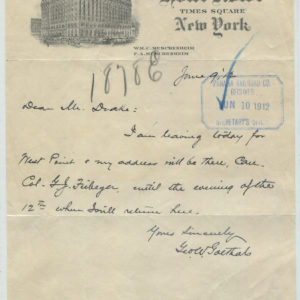 Hotel Astor
TIMES SQUARE
New York
WM. C. MUSCHENHEIM
F. A. MUSCHENHEIM
18786
June 9/12
PANAMA RAILROAD CO.
JUN 10 1912
SECRETARY'S OFF.
Dear Mr. Drake:
I am leaving today for
West Point & my address will be there, Care
Col. G. J. Fiebeger, until the evening of the
12th when I will return here.
Yours Sincerely
Geo W Goethals